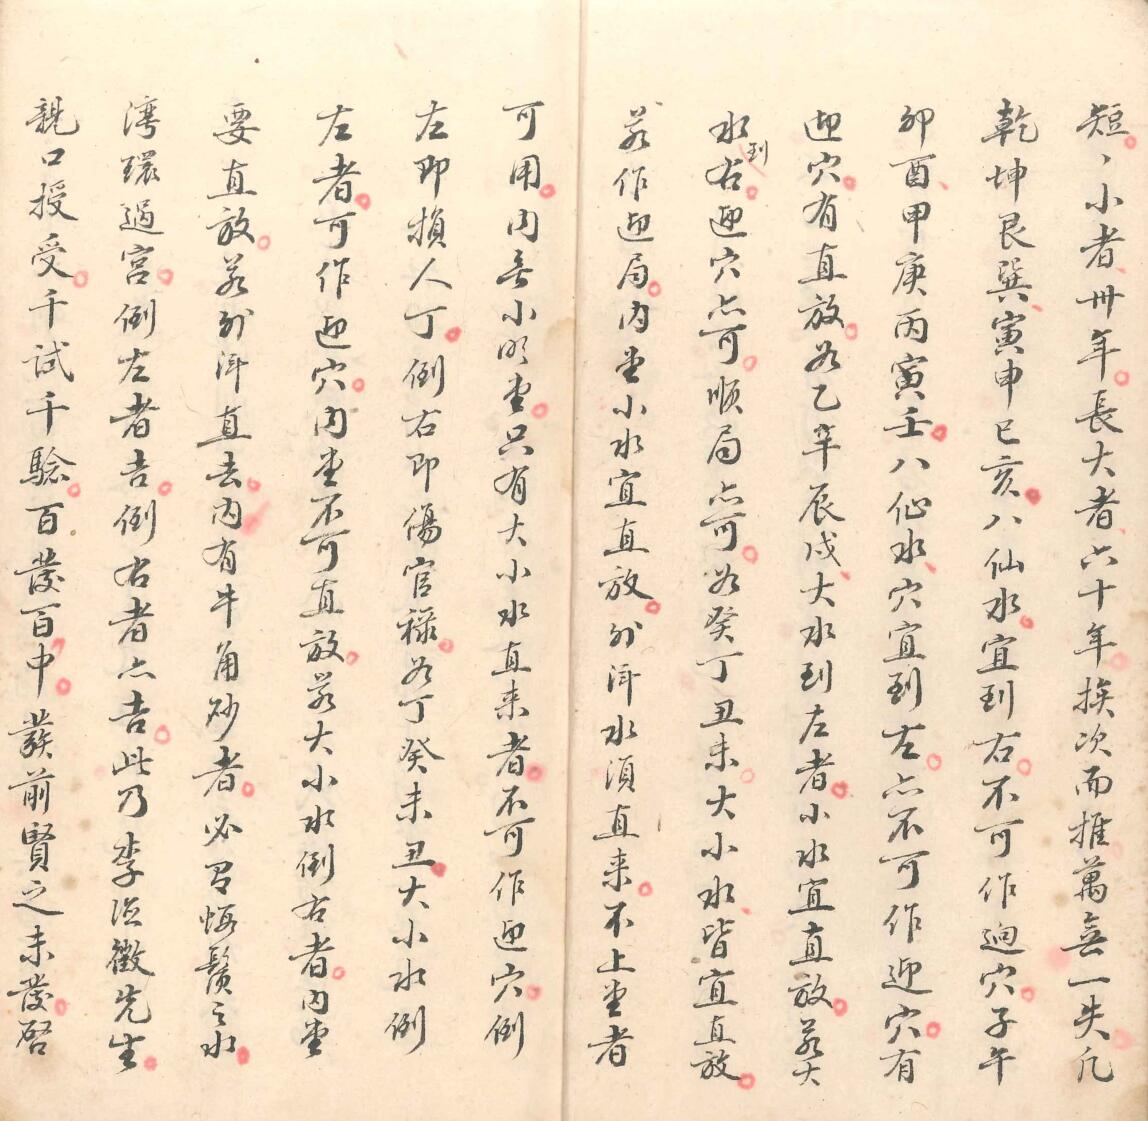 短、小者卅年長大者六十年挨次而推萬無一失凡
乾坤艮巽寅申巳亥八仙水宜到右不可作迎穴子午
卯酉甲庚丙寅壬八仙水穴宜到左亦不可作迎穴有
迎穴有直放若乙辛辰戌大水到左者小水宜直放若大
水到右迎穴亦可順局亦可若癸丁丑未大小水皆宜直放
若作迎局內堂小水宜直放外洋水須直來不上堂者
可用內無小明堂只有大小水直來者不可作迎穴倒
左即損人丁倒右即傷官祿若丁癸未丑大小水倒
左者可作迎穴內堂不可直放若大小水倒右者內堂
要直放若外洋直去內有牛角砂者必有 鬚之水
灣環過宮倒左者吉倒右者亦吉此乃李 徵先生
親口授受千試千驗百發百中 前賢之未發啓